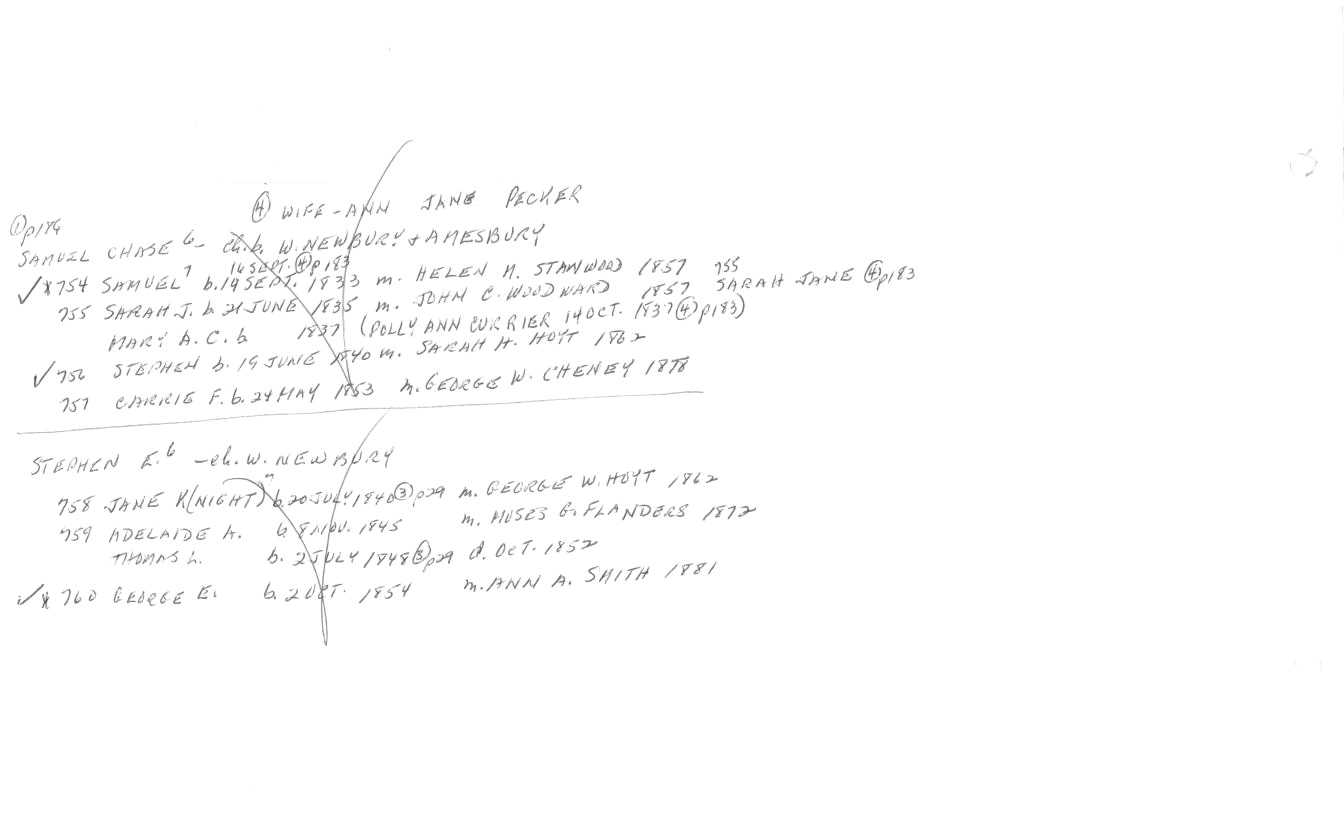 ④ WIFE - ANN JANE PECKER
① p186
SAMUEL CHASE 6 - ch. b. W. NEWBURY + AMESBURY
16 SEPT. ④ p183
✓ * 754 SAMUEL 7 b. 14 SEPT. 1833 m. HELEN M. STANWOOD 1857 755
755 SARAH J. b. 21 JUNE 1835 m. JOHN C. WOODWARD 1857 SARAH JANE ④ p183
MARY A. C. b 1837 (POLLY ANN CURRIER 14 OCT. 1837 ④ p183)
✓ 756 STEPHEN b. 19 JUNE 1840 m. SARAH H. HOYT 1862
757 CARRIE F. b. 24 MAY 1853 m. GEORGE W. CHENEY 1878
STEPHEN E. 6 - ch. W. NEWBURY
758 JANE K(NIGHT) b. 20 JULY 1840 ③ p29 m. GEORGE W. HOYT 1862
759 ADELAIDE A. b. 8 NOV. 1845 m. MOSES G. FLANDERS 1872
THOMAS L. b. 2 JULY 1848 ③ p29 d. OCT. 1852
✓ * 760 GEORGE E. b. 2 OCT. 1854 m. ANN A. SMITH 1881